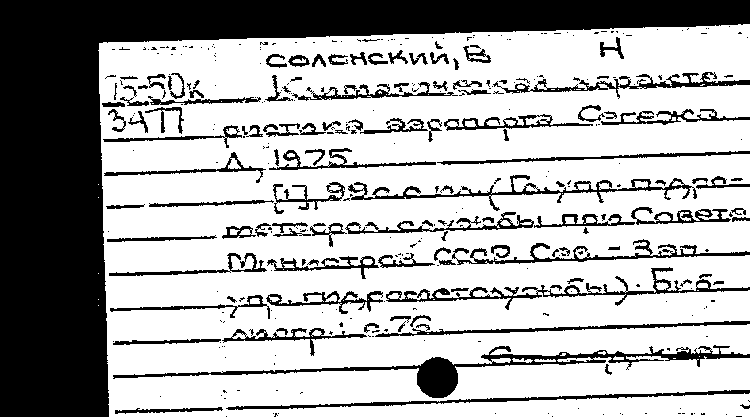 Соленский, В Н
75-50к Климатическая характе-
3477 ристика аэропорта Сегежа.
Л., 1975.
[1], 99с. с ил. (Гл. упр. гидро-
метеорол. службы при Совете
Министров СССР. Сев.-Зап.
упр. гидрометслужбы). Биб-
лиогр.: с.76.
карт.